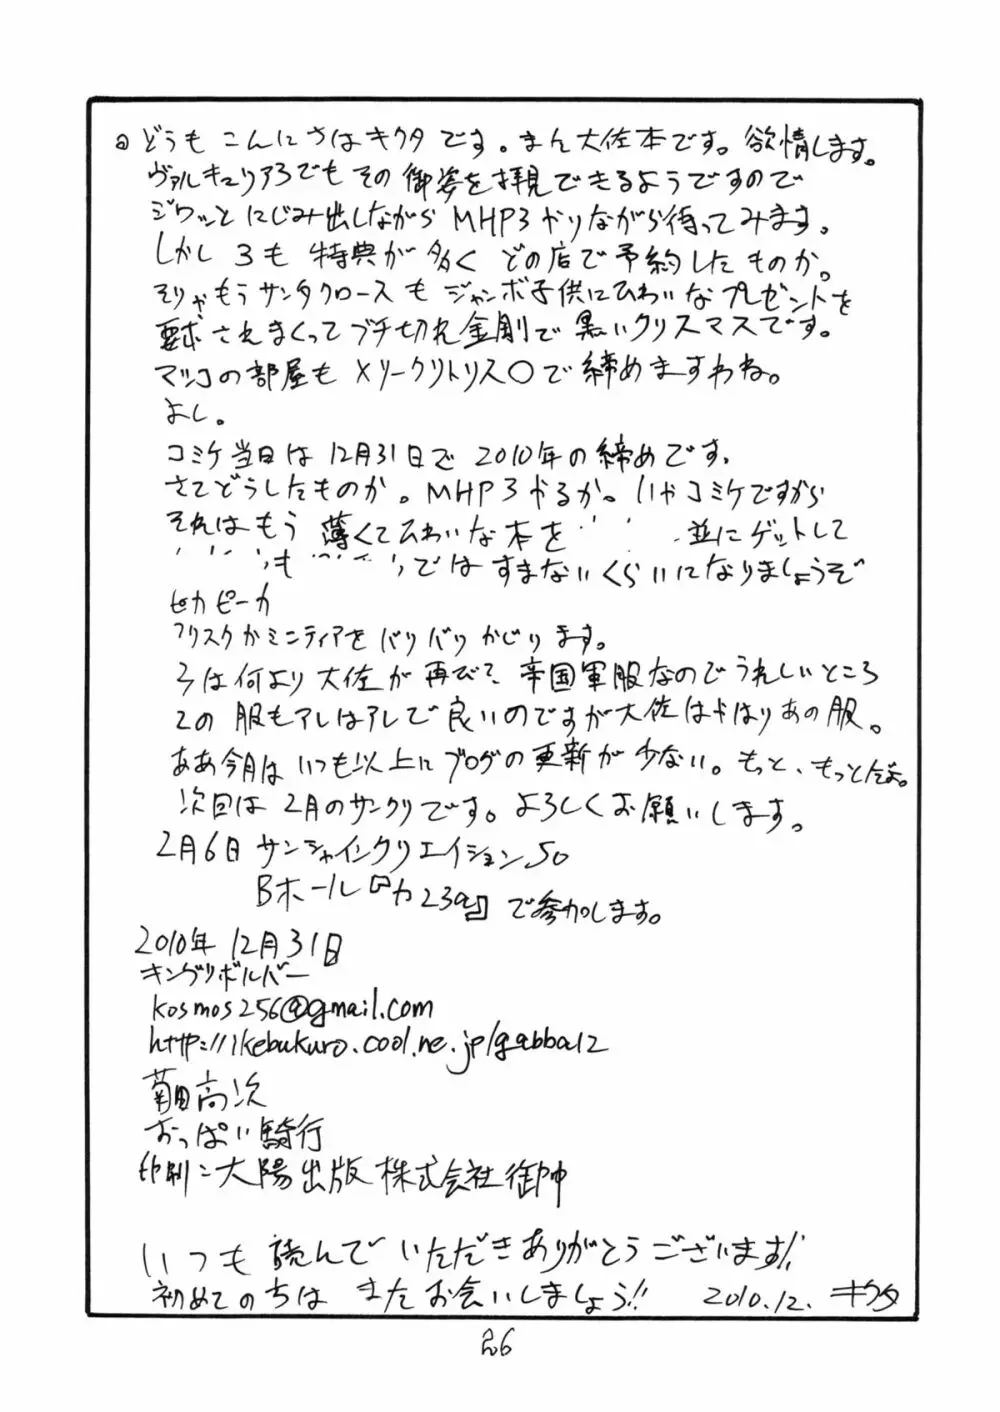 どうも こんにちはキクタです。まん大佐本です。欲情します。
ヴァルキュリア3でもその御姿を拝見できるようですので
ジワッとにじみ出しながらMHP3やりながら待ってみます。
しかし3も特典が多くどの店で予約したものか。
そりゃもうサンタクロースもジャンボ子供にひわいなプレゼントを
要求されまくってブチ切れ金剛で黒いクリスマスです。
マツコの部屋もメリークリトリス〇で締めますわね。
よし。
コミケ当日は12月31日で2010年の締めです。
さてどうしたものか。MHP3やるか。いやコミケですから
それはもう薄くてひわいな本を 並にゲットして
も ではすまないくらいになりましょうぞ
ピカピーカ
フリスクかミンティアをバリバリかじります。
3は何より大佐が再びで、帝国軍服なのでうれしいところ
2の服もアレはアレで良いのですが大佐はやはりあの服。
ああ今月はいつも以上にブログの更新が少ない。もっと、もっとだよ。
次回は2月のサンクリです。よろしくお願いします。
2月6日 サンシャインクリエイション50
Bホール『カ23a』で参加します。
2010年12月31日
キングリボルバー
kosmos256@gmail.com
http://ikebukuro.cool.ne.jp/gabba12
菊田高次
おっぱい騎行
印刷:大陽出版株式会社御中
いつも読んでいただきありがとうございます!!
初めてのちは またお会いしましょう!! 2010.12. キクタ
26